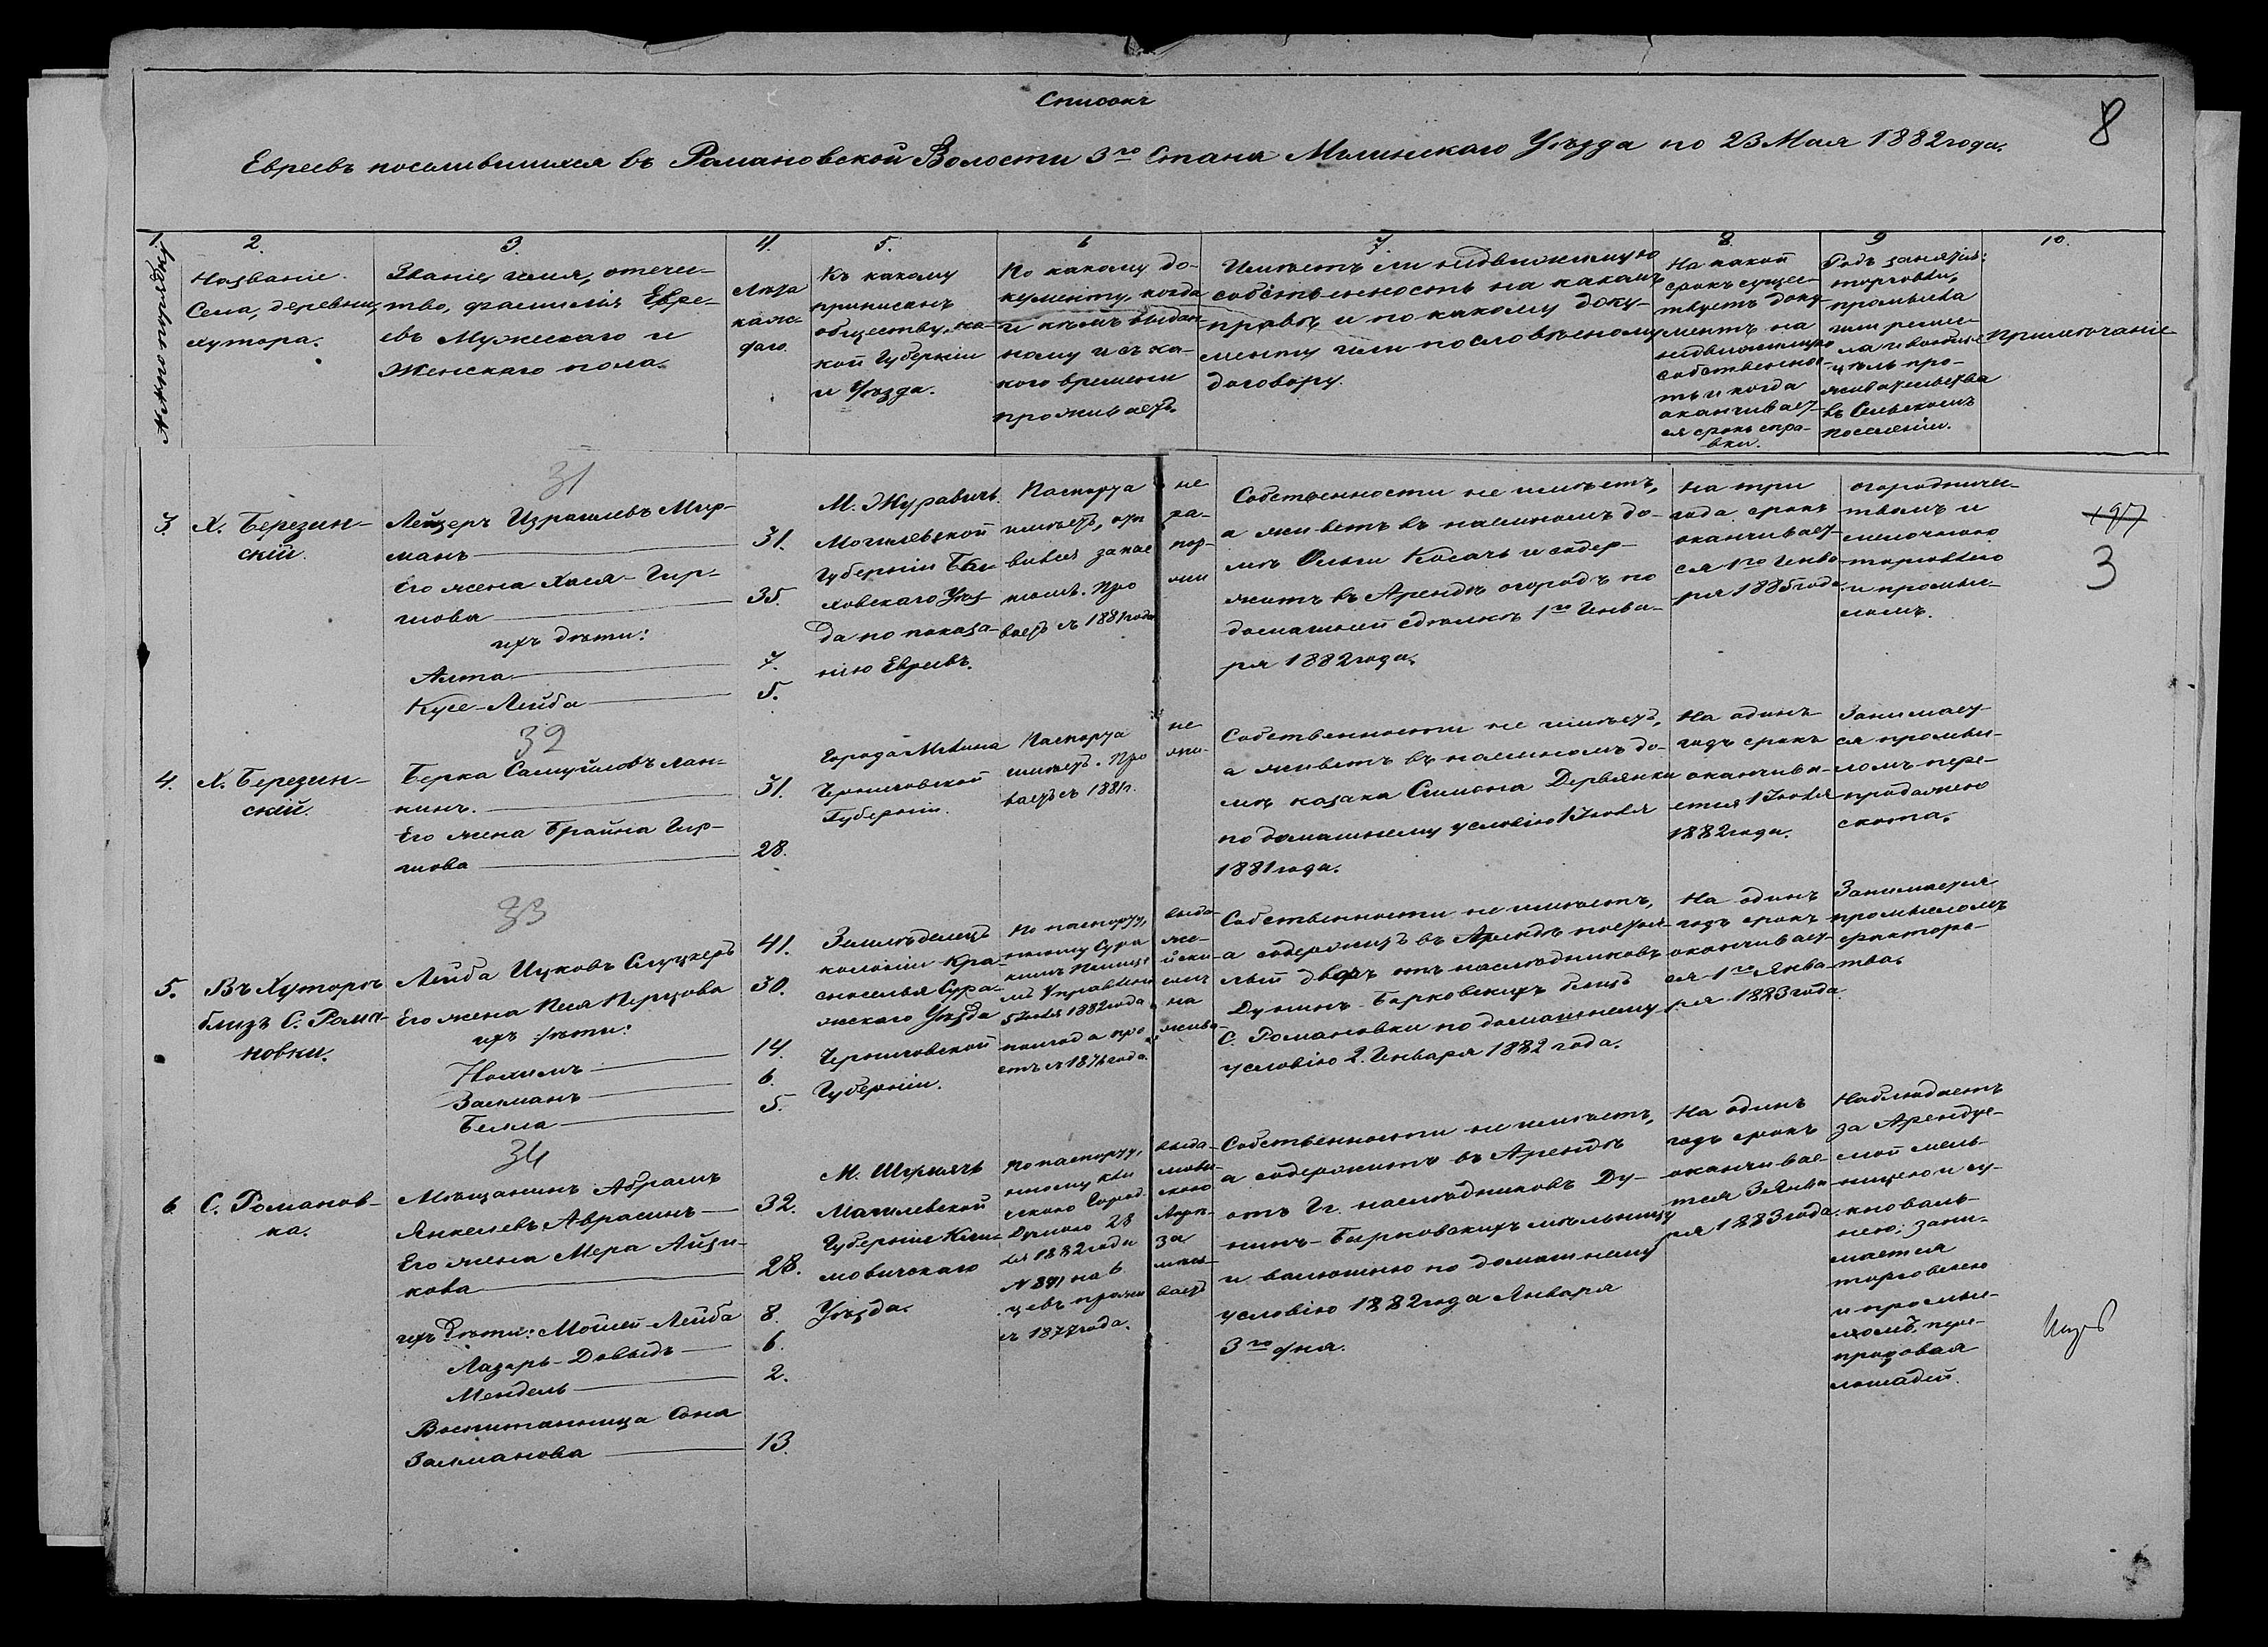 Списокъ
8
Евреевъ поселившихся въ Романовской Волости 3го Стана Мглинскаго Уѣзда по 23 Мая 1882 года.
1.
№№ по порядку
2.
Названіе
Села, деревни,
хутора.
3.
Званіе, имя, отече-
тво, фамилія Евре-
евъ Мужескаго и
Женскаго пола.
4.
Лѣта
каж-
даго.
5.
Къ какому
приписанъ
обществу, ка-
кой Губерніи
и Уѣзда.
6
По какому до-
кументу, когда
и кѣмъ выдан-
ному и съ ка-
кого времени
проживаетъ.
7.
Имѣетъ ли недвижимую
собственность на какомъ
правѣ, и по какому доку-
менту или по словѣсному
договору.
8.
На какой
срокъ сущес-
твуетъ доку-
ментъ на
недвижимую
собственнос-
ть и когда
оканчивает-
ся срокъ
9
Родъ занятія:
торговли,
промысла
или ремес-
ла и
цѣль про-
жительства
въ Сельскомъ
поселеніи.
10.
Примѣчаніе
31
3.
Х. Березин-
скій.
Лейзеръ Израилевъ Мир-
манъ
Его жена Хася-Гир-
шова
ихъ дѣти:
Алта
Кусе-Лейба
31.
35.
7.
5.
М. Журавичъ
Могилевской
Губерніи Бы-
ховскаго Уѣз-
да по показа-
нію Евреевъ.
Паспорта не
имѣетъ,
Про жи
ваетъ съ 1881 года
Собственности не имѣетъ,
а живетъ въ наемномъ до-
мѣ Ольги Косачъ и содер-
житъ въ Арендѣ огородъ по
домашней сдѣлкѣ 1го Янва-
ря 1882 года.
на три
года срокъ
оканчивает-
ся 1го Янва-
ря 1885 года
огородничес-
твомъ и
мелочною
торговлею
и промыс-
ломъ.
197
3
32
4.
Х. Березин-
скій.
Берка Самуйловъ Хан-
кинъ.
Его жена Брайна Гир-
шова
31.
28.
Города Мглина
Черниговской
Губерніи.
Паспорта не
имѣетъ. Про жи-
ваетъ съ 1881г.
Собственности не имѣетъ,
а живетъ въ наемномъ до-
мѣ казака Симона Деревянки
по домашнему условію 1 Іюля
1881 года.
На одинъ
годъ срокъ
оканчива-
ется 1 Іюля
1882 года.
Занимает-
ся промыс-
ломъ пере-
продажею
скота.
33
5.
Въ Хуторѣ
близъ С. Рома-
новки.
Лейба Ицковъ Слуцкеръ
Его жена Песя Перцова
ихъ дѣти:
Нохимъ
Залманъ
Белла
41.
30.
14.
6.
5.
Земледѣлецъ
колоніи Кра-
сноселья Сура-
жскаго Уѣзда
Черниговской
Губерніи.
По паспорту, выда-
нному Сура же-
кимъ Полиц. ейски
мъ Управлені емъ
1882 года на
полгода про жива-
етъ съ 1876 года.
Собственности не имѣетъ,
а содержитъ въ Арендѣ постоя-
лый дворъ отъ наслѣдниковъ
Дунинъ-Барковскихъ близъ
С. Романовки по домашнему
условію 2. Января 1882 года.
На одинъ
годъ срокъ
оканчивает-
ся 1го Янва-
ря 1883 года.
Занимается
промысломъ
факторс-
тва.
34
6
С. Романов-
ка.
Мѣщанинъ Абрамъ
Янкелевъ Аврасинъ
Его жена Мера Айзи-
кова
ихъ дѣти: Мошей-Лейба
Лазарь-Довыдъ
Мендель
Воспитанница Соня
Залманова
32.
28.
8.
6.
2.
13.
М. Шумячъ
Могилевской
Губерніи Кли-
мовичскаго
Уѣзда.
По паспорту, выда-
нному Кли мови-
ческою Город скою
Думою 28 Апрѣ-
ля 1882 года за
№ 391 на 6 мѣся-
цевъ прожи ваетъ
съ 1877 года.
Собственности не имѣетъ,
а содержитъ въ Арендѣ
отъ Гг. наслѣдниковъ Ду-
нинъ-Барковскихъ мѣльницу
и валюшню по домашнему
условію 1882 года Января
3го дня.
На одинъ
годъ срокъ
оканчивае-
тся 3 Янва-
ря 1883 года.
Наблюдаетъ
за Арендуе-
мой мель-
ницею и су-
кноваль-
нею; зани-
мается
торговлею
и промыс-
ломъ, пере-
продовая
лошадей.